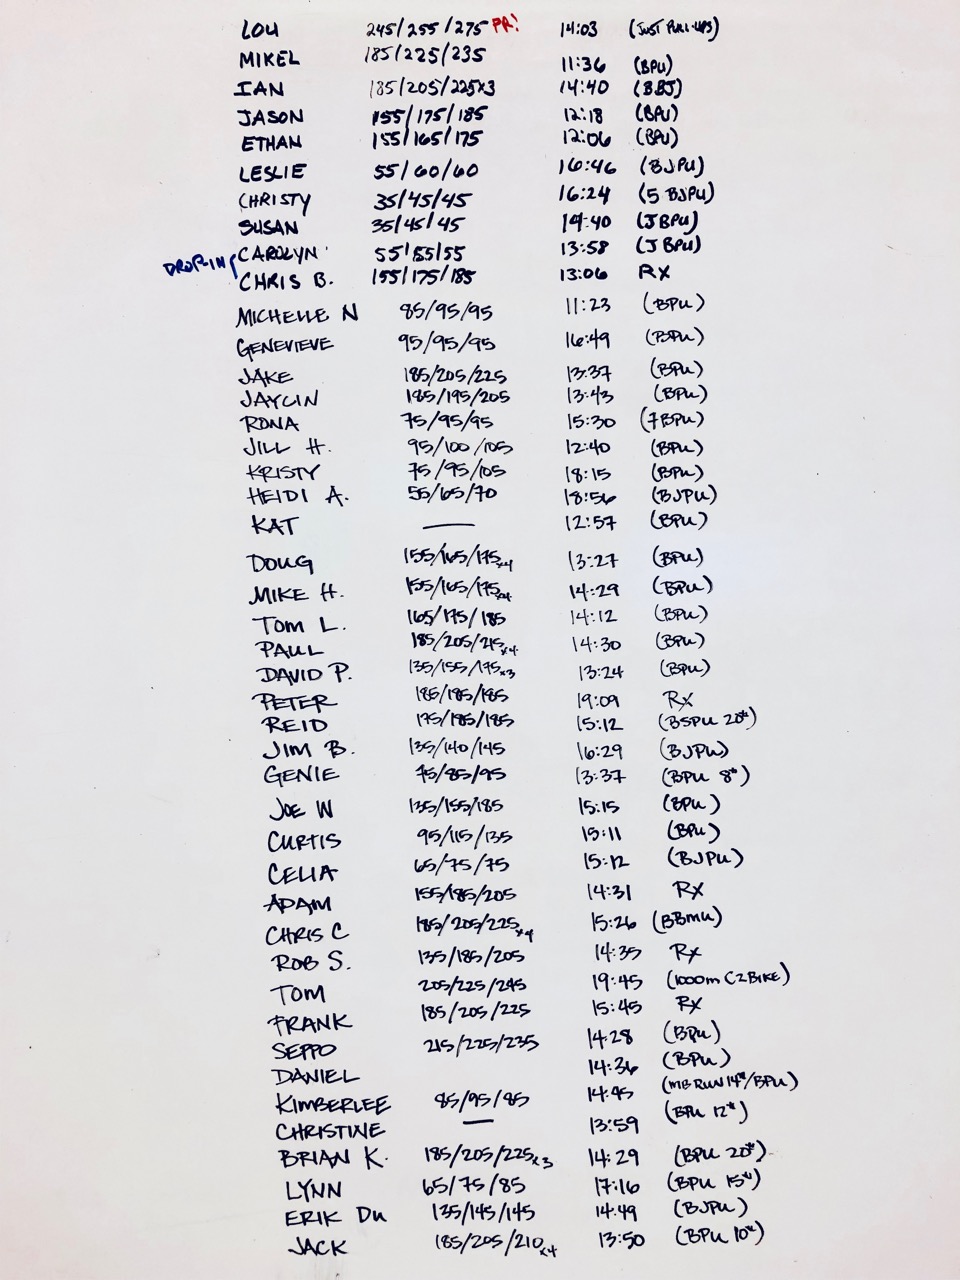 LOU 245/255/275 PR! 14:03 (JUST PULL-UPS)
MIKEL 185/225/235 11:36 (BPU)
IAN 185/205/225x3 14:40 (BBJ)
JASON 155/175/185 12:18 (BPU)
ETHAN 155/165/175 12:06 (BPU)
LESLIE 55/60/60 16:46 (BJPU)
CHRISTY 35/45/45 16:24 (5 BJPU)
SUSAN 35/45/45 14:40 (JBPU)
DROP-IN CAROLYN 55/55/55 13:58 (JBPU)
CHRIS B. 155/175/185 13:06 RX
MICHELLE N 85/95/95 11:23 (BPU)
GENEVIEVE 95/95/95 16:49 (BPU)
JAKE 185/205/225 13:37 (BPU)
JAYLIN 185/195/205 13:43 (BPU)
RONA 75/95/95 15:30 (7BPU)
JILL H. 95/100/105 12:40 (BPU)
KRISTY 75/95/105 18:15 (BPU)
HEIDI A. 55/65/70 18:56 (BJPU)
KAT — 12:57 (BPU)
DOUG 155/165/175x4 13:27 (BPU)
MIKE H. 155/165/175x4 14:29 (BPU)
TOM L. 165/175/185 14:12 (BPU)
PAUL 185/205/215x4 14:30 (BPU)
DAVID P. 135/155/175x3 13:24 (BPU)
PETER 185/185/185 19:09 RX
REID 175/185/185 15:12 (BSPU 20#)
JIM B. 135/140/145 16:29 (BJPU)
GENIE 75/85/95 13:37 (BPU 8#)
JOE W 135/155/185 15:15 (BPU)
CURTIS 95/115/135 15:11 (BPU)
CELIA 65/75/75 15:12 (BJPU)
ADAM 155/185/205 14:31 RX
CHRIS C 185/205/225x4 15:26 (BBMU)
ROB S. 135/185/205 14:35 RX
TOM 205/225/245 19:45 (1000m C2BIKE)
FRANK 185/205/225 15:45 RX
SEPPO 215/225/235 14:28 (BPU)
DANIEL 14:36 (BPU)
KIMBERLEE 85/95/85 14:45 (MB RUN 14#/BPU)
CHRISTINE — 13:59 (BPU 12#)
BRIAN K. 185/205/225x3 14:29 (BPU 20#)
LYNN 65/75/85 17:16 (BPU 15#)
ERIK DU 135/145/145 14:49 (BJPU)
JACK 185/205/210x4 13:50 (BPU 10#)